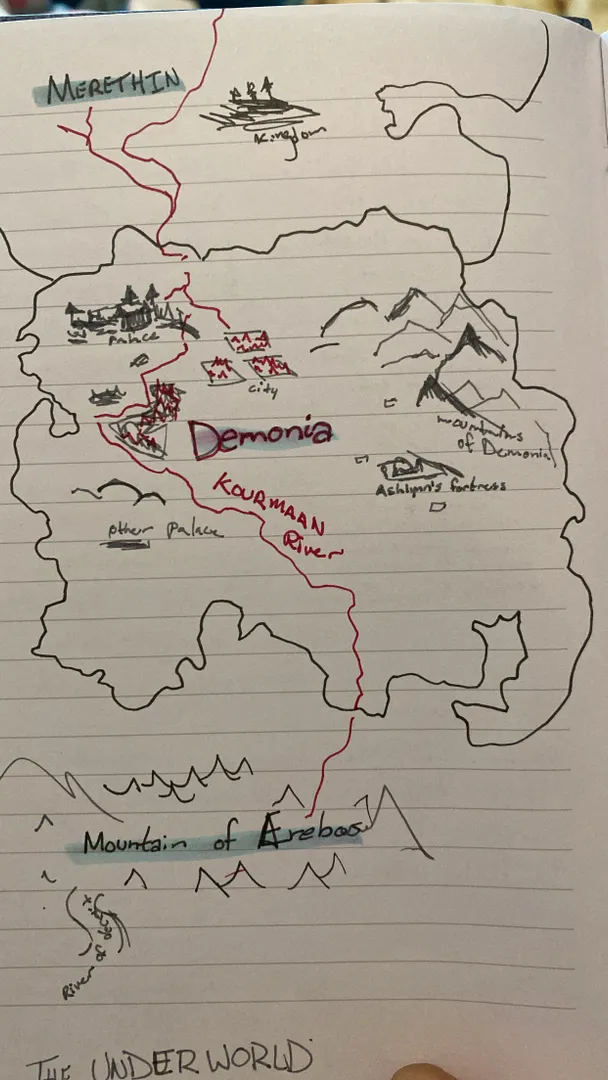 MERETHIN
Kingdom
Palace
city
Demonia
mountains
of Demonia
Ashlynn's fortress
KOURMAAN
River
other palace
Mountain of Arebos
River
THE UNDERWORLD